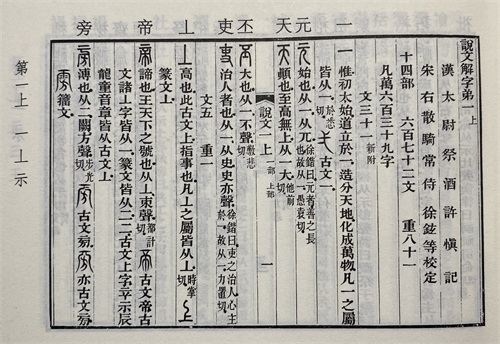 一
元
天
丕
吏
丄
帝
旁
說文解字弟一上
漢太尉祭酒許愼記
宋右散騎常侍徐鉉等校定
十四部 六百七十二文 重八十一
凡萬六百三十九字
文三十一新附
一惟初太始道立於一造分天地化成萬物凡一之屬
皆从一於悉切弌古文一
元始也从一从兀徐鍇曰元者善之長也故从一愚袁切
天顚也至高無上从一大他前切
說文一上一部上部 一
丕大也从一不聲敷悲切
吏治人者也从一从史史亦聲徐鍇曰吏之治人心主於一故从一力置切
文五 重一
丄高也此古文上指事也凡丄之屬皆从丄時掌切上
篆文丄
帝諦也王天下之號也从丄朿聲都計切帝古文帝古
文諸丄字皆从一篆文皆从二二古文上字䇂示辰
龍童音章皆从古文上
旁溥也从二闕方聲步光切旁古文旁旁亦古文旁
雱籒文
第一上 一 丄 示